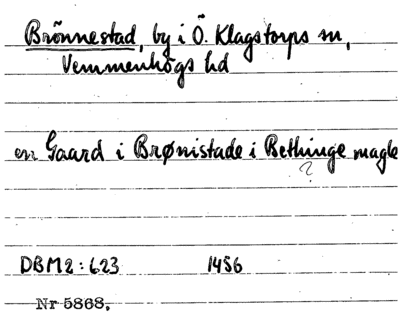 Brönnestad, by i Ö. Klagstorps sn,
Vemmenhögs hd
en Gaard i Brønistade i Bethinge magle
?
DBM2:623 1456
Nr 5868.